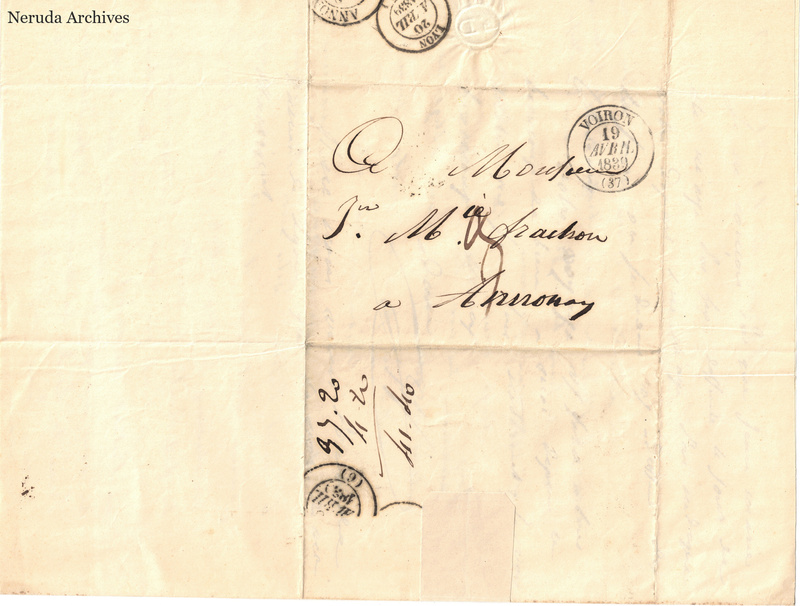 Neruda Archives
ANN
LYON
20
AVRIL
1839
VOIRON
19
AVRIL
1839
(37)
A Monsieur
Jn Mie frachon
a Annonay
8
37.20
4.20
41.40
AVRIL
1839
(6)